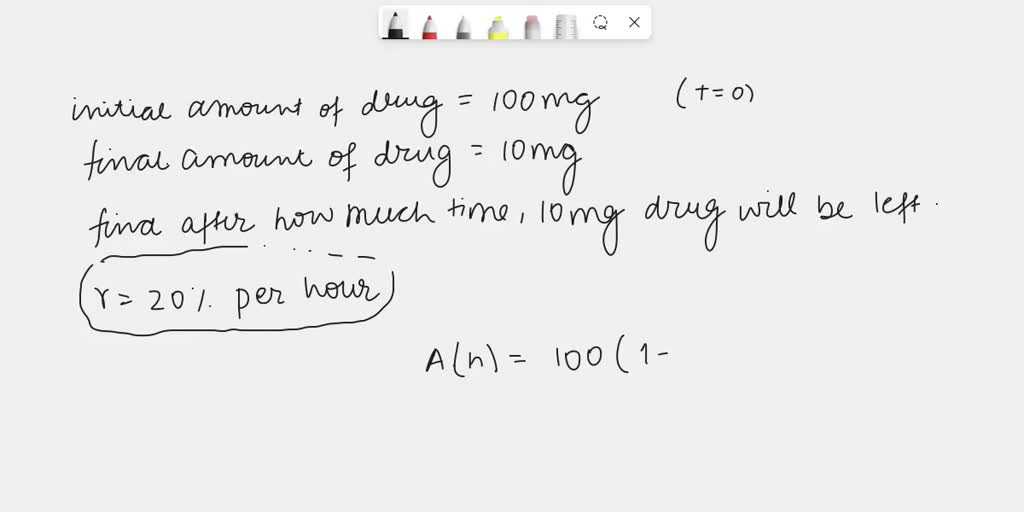 initial amount of drug = 100mg (t=0)
final amount of drug = 10mg
find after how much time, 10mg drug will be left.
r = 20% per hour
A(n) = 100 ( 1 -